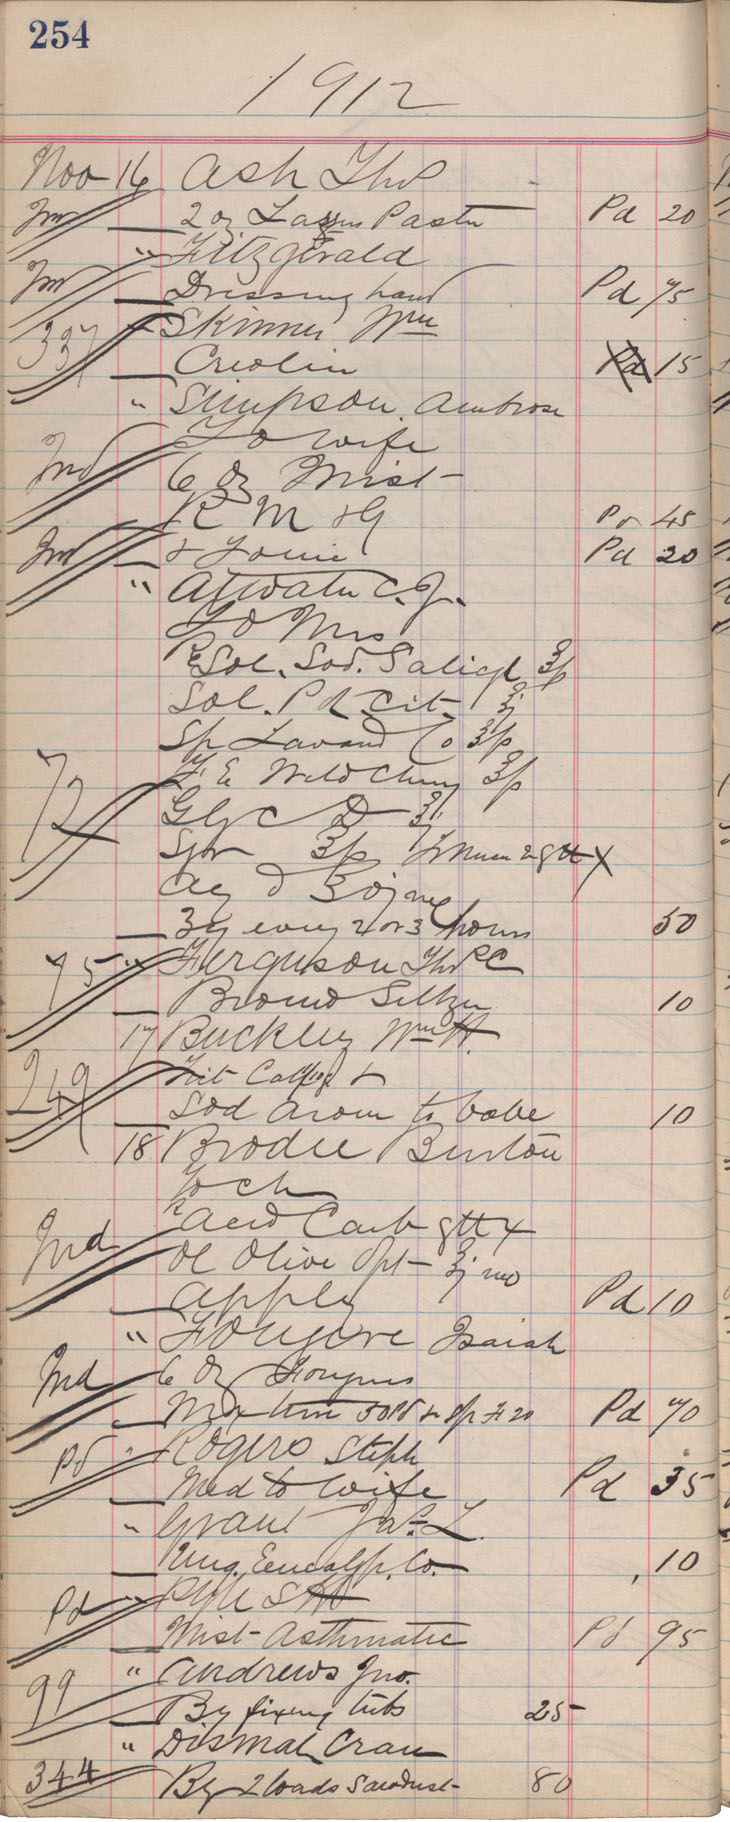 254
1912
Nov 16 Ash Thos
Ind 2 oz Lassars Paste Pd 20
" Fitzgerald
Ind Dressing hand Pd 75
337 " Skinner Wm
Creolin Pd 15
" Simpson Ambrose
To wife
Ind 6 oz Mist
R M & G Pd 45
Ind & Tonic Pd 20
" Atwater C. J.
To Mrs
Rx Sol. Sod. Salicyl ʒp
Sol. P Cit ʒj
Sp Lavand Co ʒp
72 F E Wild Cherry ʒp
Glyc ʒj
ʒp gtt x
Aq
ʒj every 2 or 3 hours 50
75 " Ferguson Thos C
Bromo Seltzer 10
17 Buckley Wm H.
249
Sod Arom to babe 10
18 Brodie Burton
To ch
Rx Acid Carb gtt x
Ind Ol Olive Opt ʒj
Apply Pd 10
" Fougere Isaiah
Ind 6 oz
Pd 70
Pd " Rogers Steph
Med to wife Pd 35
" Grant Jas L.
Ung. Eucalyp. Co. 10
Pd "
Mist Asthmatic Pd 95
" Andrews Jno.
99 By fixing tubs 25
" Dismal Cran
344 By 2 loads Sawdust 80